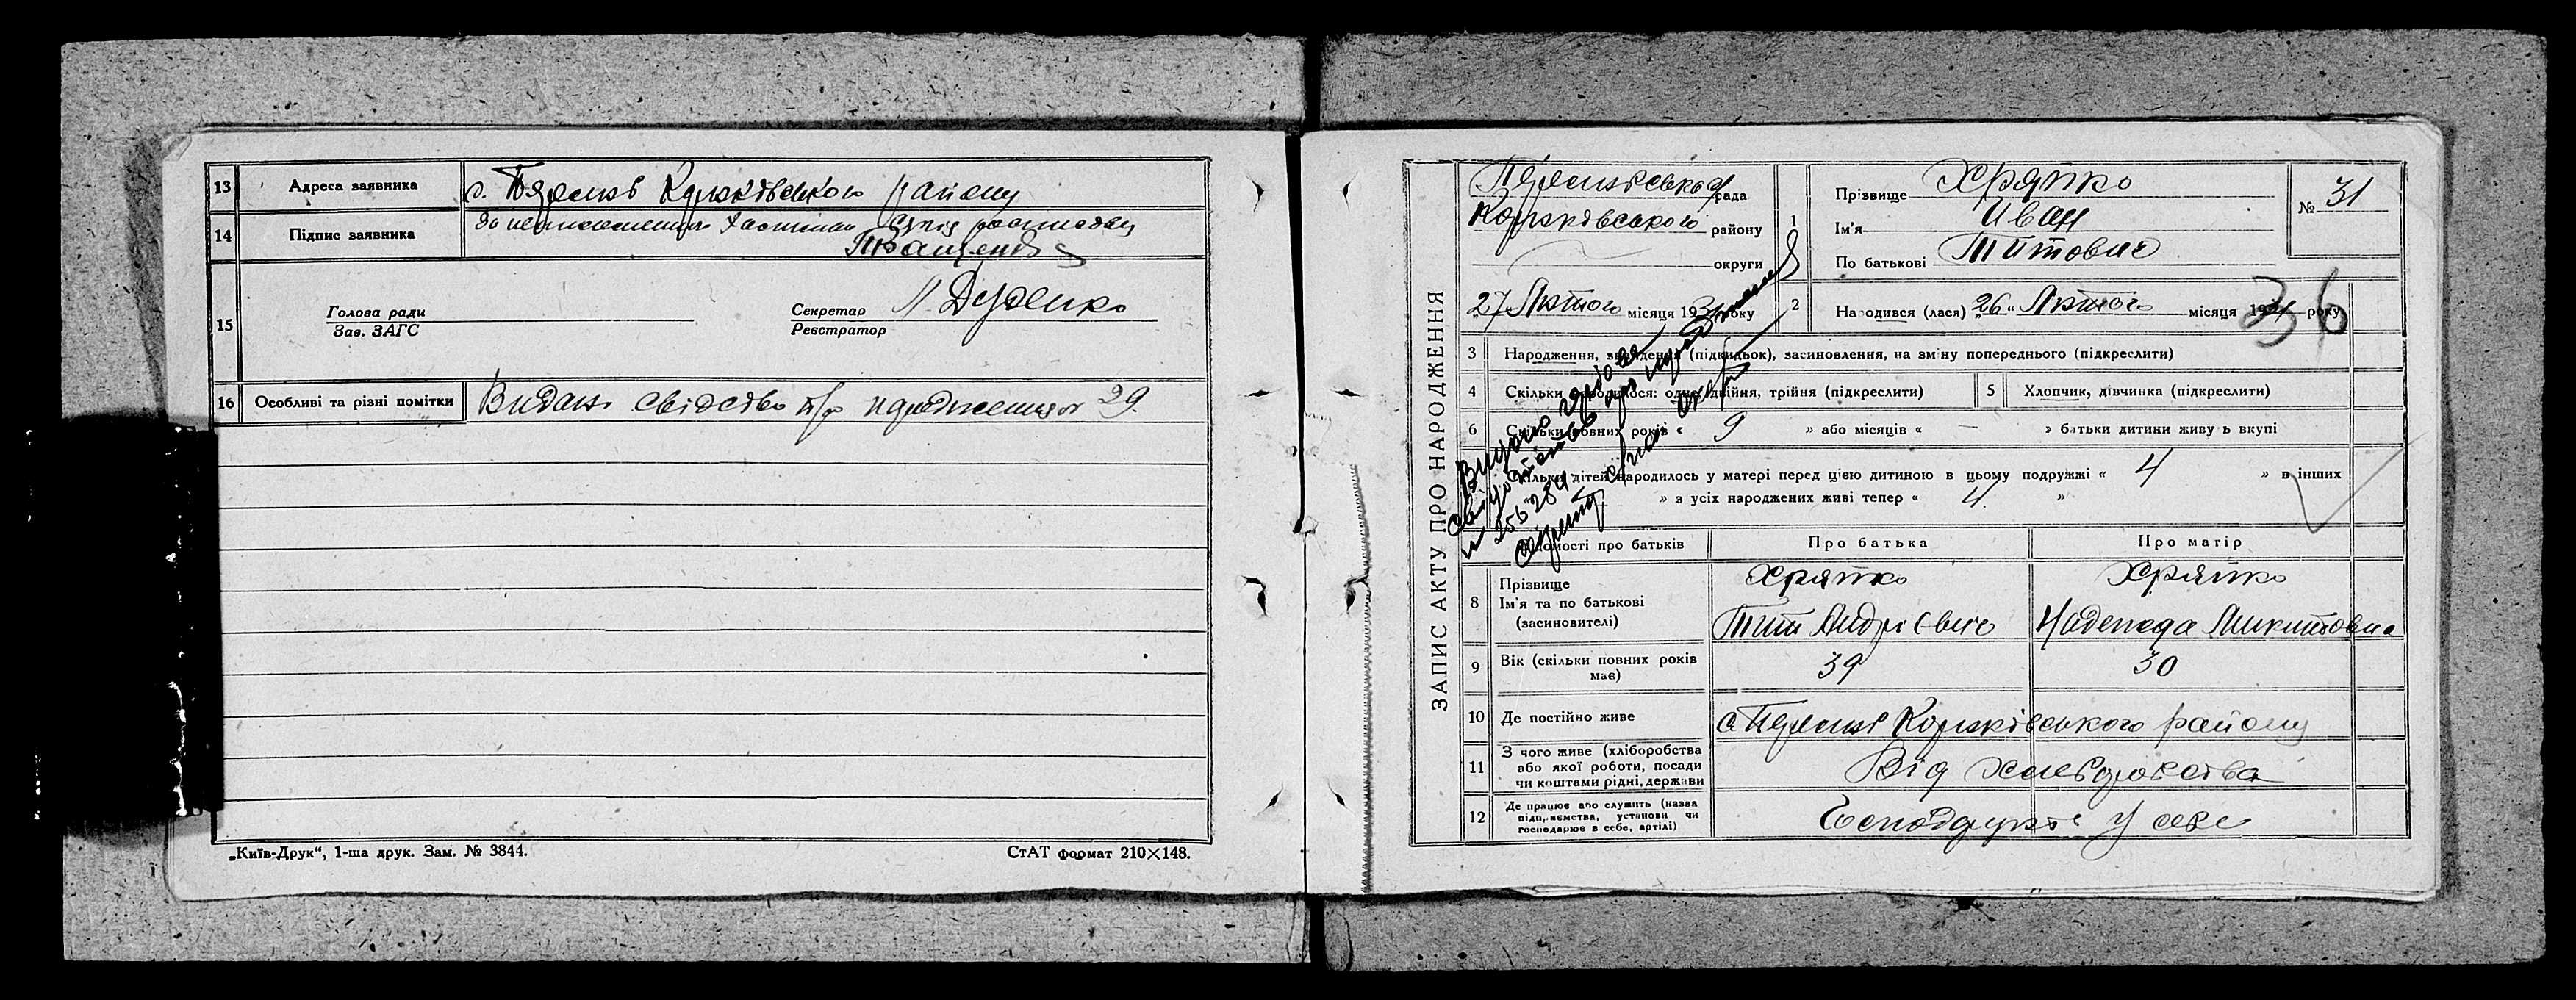 13 Адреса заявника с. Коржківського району
14 Підпис заявника За
15 Голова ради Секретар Л. Дуденко
Зав. ЗАГС Реєстратор
16 Особливі та різні помітки Видано свідство про народження № 29.
„Київ-Друк“, 1-ша друк. Зам. № 3844. СтАТ формат 210×148.
ЗАПИС АКТУ ПРО НАРОДЖЕННЯ
рада
Коржківського району
округи
27 Лютого місяця 1931 року
1 Прізвище Хряпко
Ім'я Иван
По батькові Титович
№ 31
2 Народився (лася) „26“ Лютого місяця 1931 року
36
3 Народження, знайдення (підкидьок), засиновлення, на зміну попереднього (підкреслити)
4 Скільки народилося: одно, двійня, трійня (підкреслити) 5 Хлопчик, дівчинка (підкреслити)
6 Скільки повних років « 9 » або місяців « — » батьки дитини живуть вкупі
Скільки дітей народилось у матері перед цією дитиною в цьому подружжі « 4 » в інших
» з усіх народжених живі тепер « 4 »
Відомості про батьків Про батька Про матір
8 Прізвище Хряпко Хряпко
Ім'я та по батькові
(засновителі) Тит Андрієвич Надежда Микитовна
9 Вік (скільки повних років має) 39 30
10 Де постійно живе с. Коржківського району
11 З чого живе (хліборобства
або якої роботи, посади
чи коштами рідні, держави Від хліборобства
12 Де працює або служить (назва
підприємства, установи чи
господарює в себе, артілі) Господарює у себе